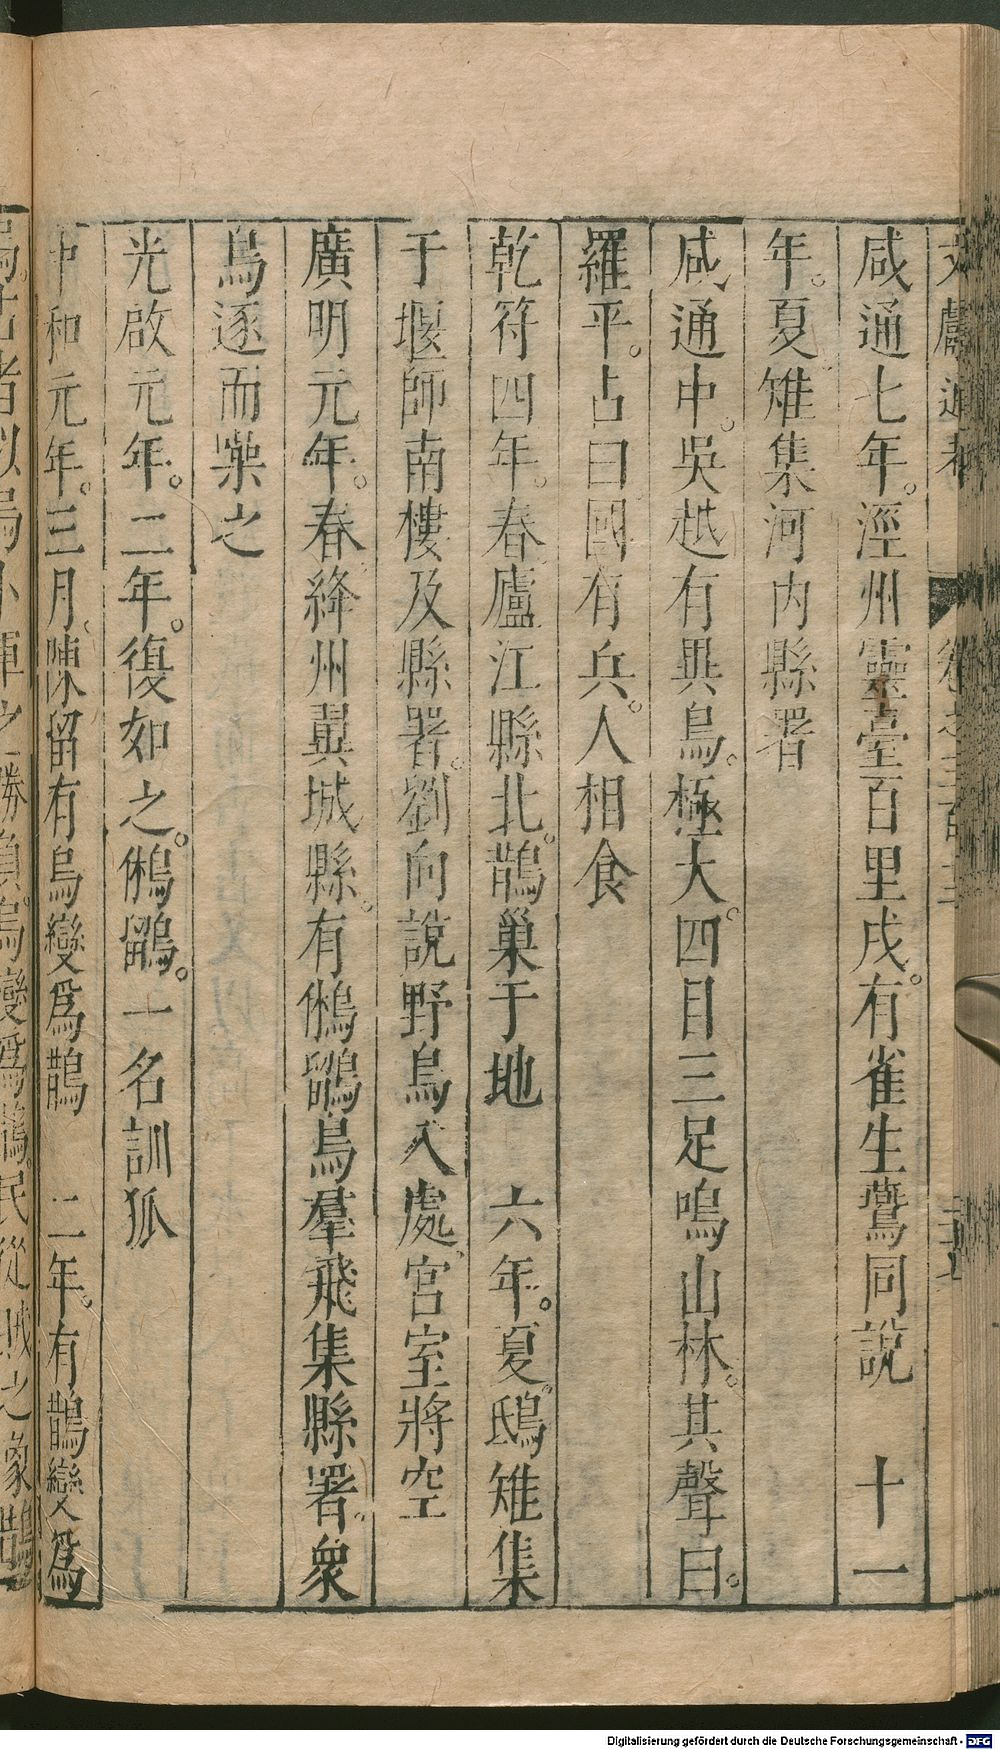 文獻通考 卷之三百十三
咸通七年。涇州靈臺百里戌。有雀生鷰同說　十一
年。夏雉集河內縣署
咸通中。吳越有異鳥。極大。四目三足鳴山林。其聲曰。
羅平。占曰國有兵。人相食
乾符四年。春廬江縣北。鵲巢于地　六年。夏。鴟雉集
于堰師南樓及縣署。劉向說野鳥入處。宮室將空
廣明元年。春。絳州翼城縣。有鵂鶹鳥羣飛集縣署。衆
鳥逐而噪之
光啟元年。二年。復如之。鵂鶹。一名訓狐
中和元年。三月。陳留有烏變爲鵲　二年。有鵲變爲
之勝負。烏變爲鵲。民從賊之象。鵲
Digitalisierung gefördert durch die Deutsche Forschungsgemeinschaft - DFG